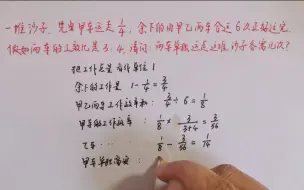 一堆沙子,先由甲车运走1/4,余下的由甲乙两车合运6次正好运完
假如两车的工效比是3:4,请问:两车单独运走这堆沙子各需几次?
把工作总量看作单位1
余下的工作量 1-1/4=3/4
甲乙两车工作效率和: 3/4÷6=1/8
甲车的工作效率: 1/8×3/(3+4)=3/56
乙车 ··· 1/8-3/56=1/14
甲车单独需运: